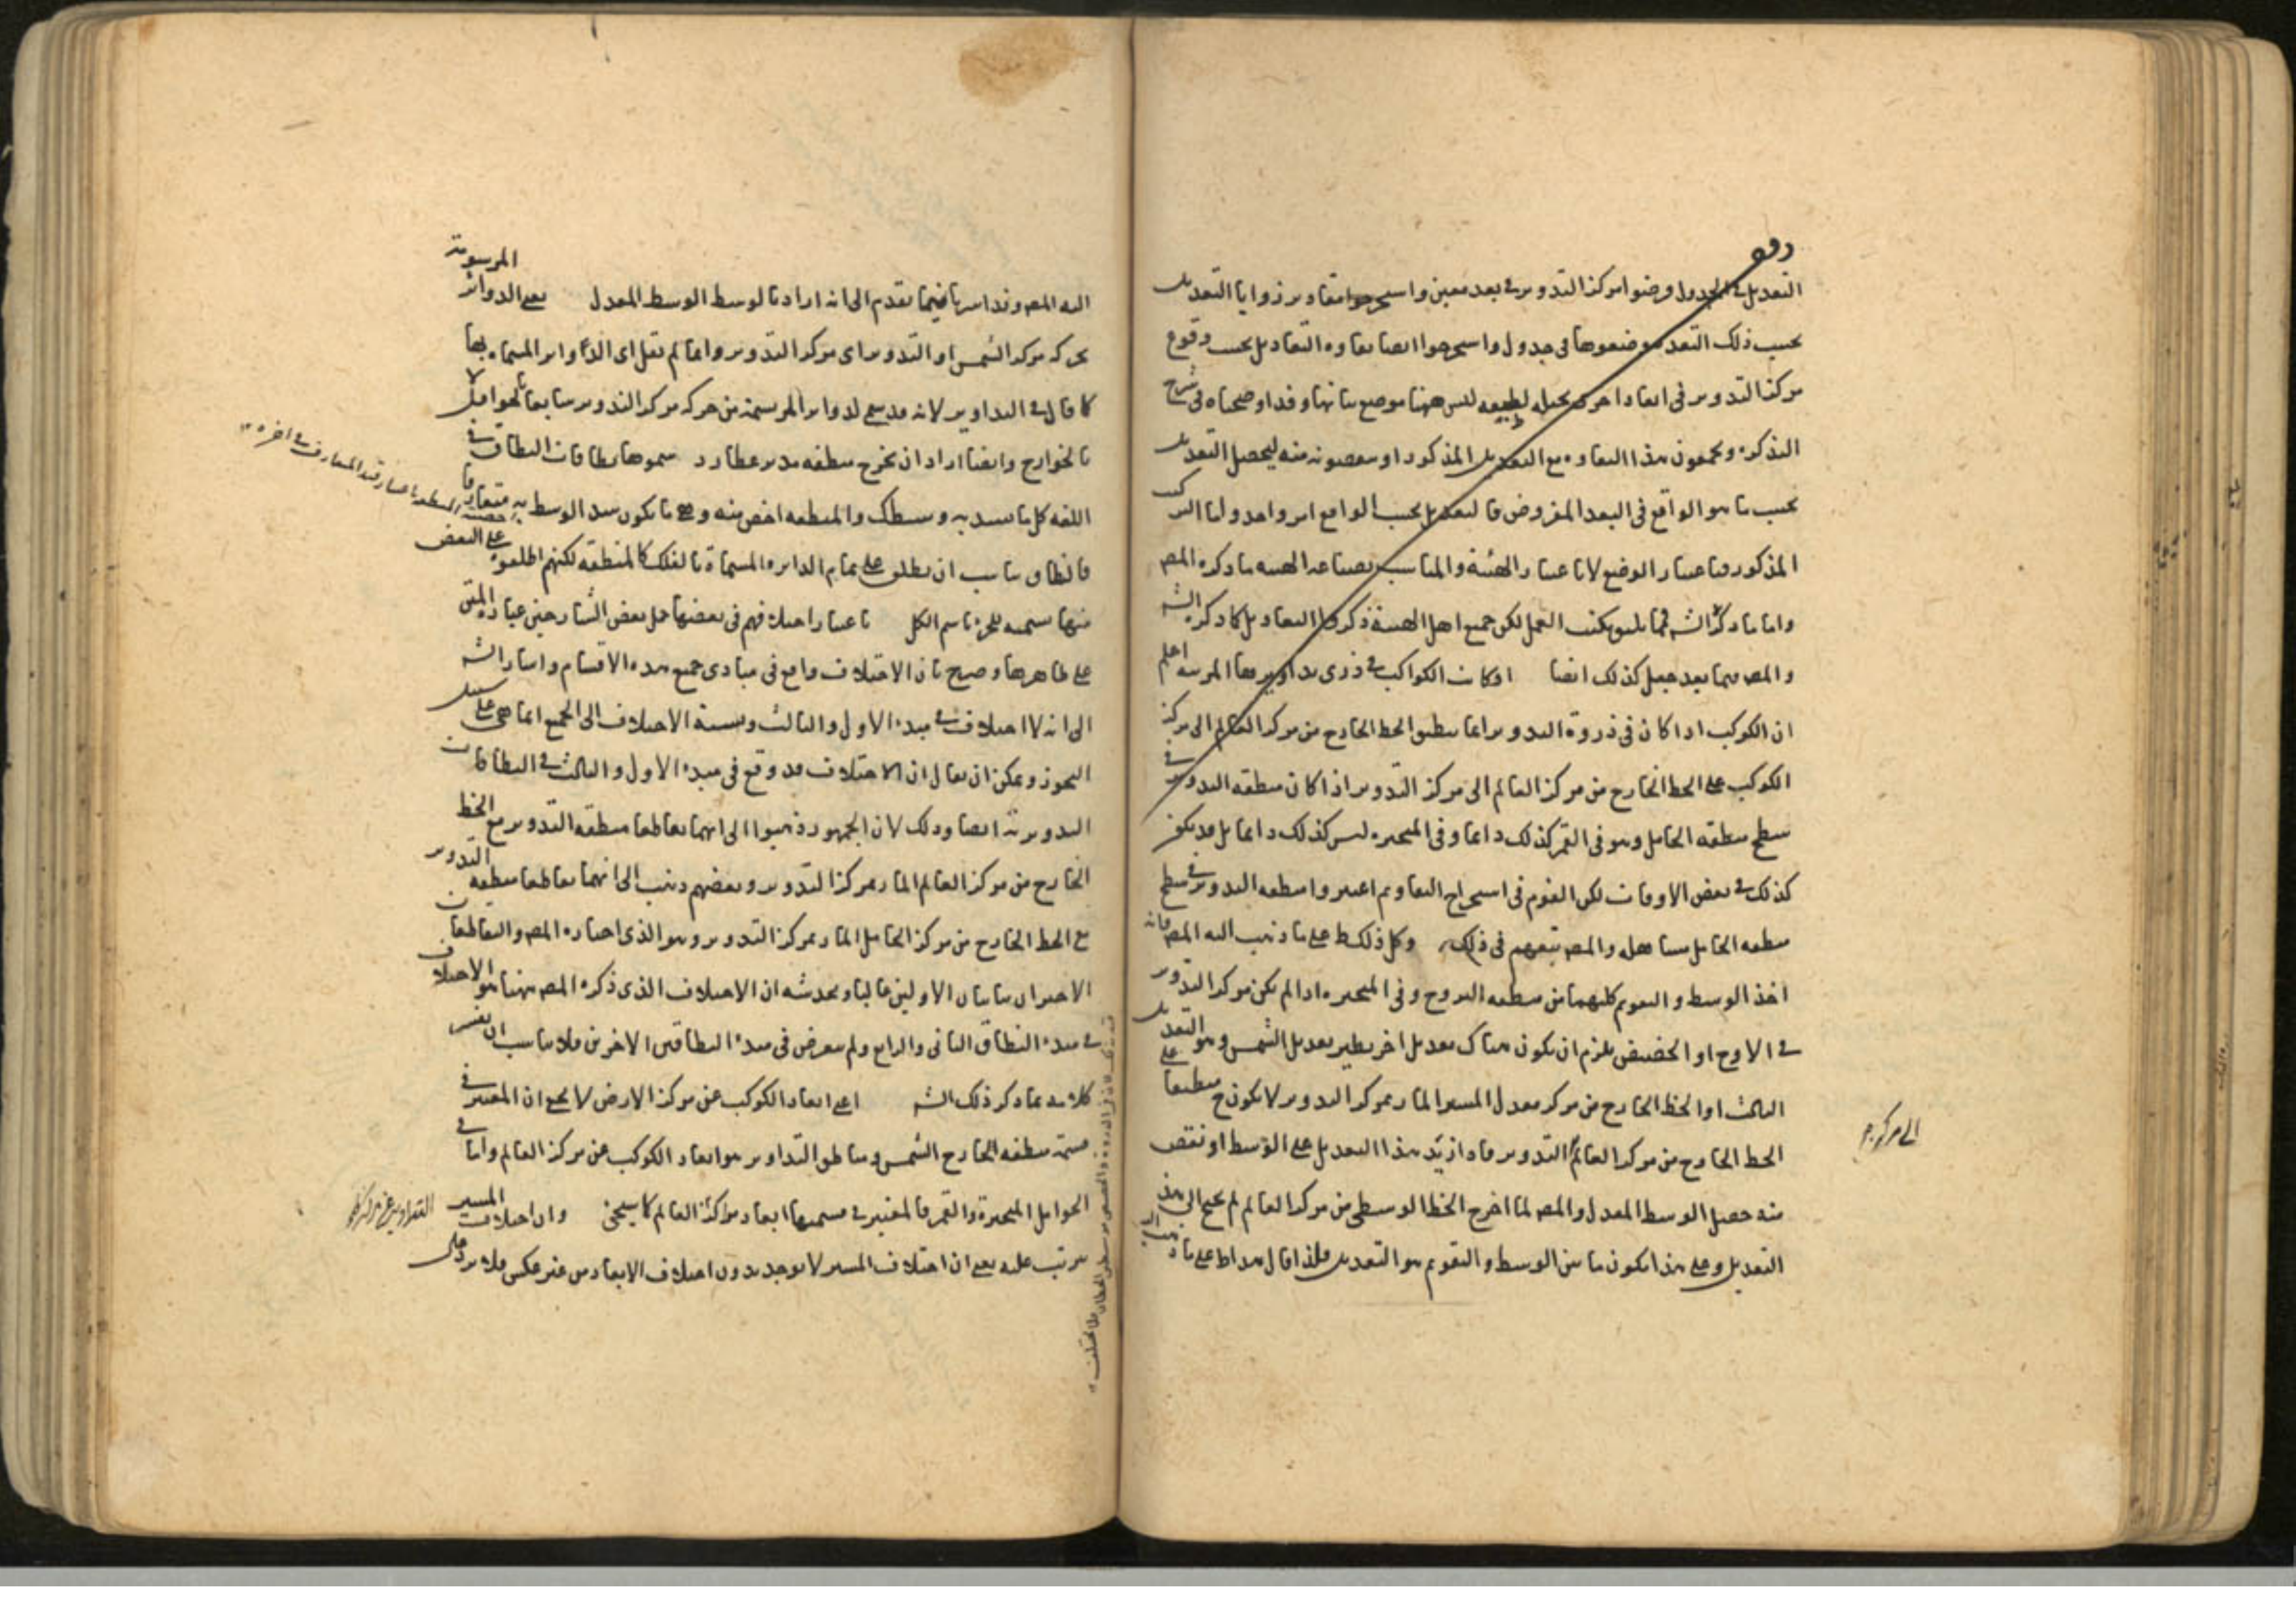 التعديل في الجدول فرضوا مركز التدوير في بعد معين واستخرجوا مقادير زوايا التعديل
بحسب ذلك البعد فوضعوها في جدول واستخرجوا ايضا تفاوت التعاديل بحسب وقوع
مركز التدوير في ابعاد اخر بحيلة لطيفة ليس ههنا موضع بيانها وقد اوضحناه في شرح
التذكرة ويجمعون هذا التفاوت مع التعديل المذكور او ينقصونه منه ليحصل التعديل
بحسب ما هو الواقع في البعد المفروض فالتعديل بحسب الواقع امر واحد واما التركيب
المذكور فباعتبار الوضع لا باعتبار الهيئة والمناسب بصناعة الهيئة ما ذكره المصـ
واما ما ذكره الشـ فمما يليق بكتب العمل لكن جميع اهل الهيئة ذكروا التعاديل كما ذكره الشـ
والمصـ فيما بعد جعل كذلك ايضا اذ كانت الكواكب في ذرى تداويرها المرئية اعلم
ان الكوكب اذا كان في ذروة التدوير انما ينطبق الخط الخارج من مركز العالم الى مركز
الكوكب على الخط الخارج من مركز العالم الى مركز التدوير اذا كان منطقة التدوير في
سطح منطقة الحامل وهو في القمر كذلك دائما وفي المتحيرة ليس كذلك دائما بل قد يكون
كذلك في بعض الاوقات لكن القوم في استخراج التقاويم اعتبروا منطقة التدوير في سطح
منطقة الحامل مساهلة والمصـ تبعهم في ذلك وكل ذلك ط على ما ذهب اليه المصـ فانه
اخذ الوسط والتقويم كليهما من منطقة البروج وفي المتحيرة اذا لم يكن مركز التدوير
في الاوج او الحضيض يلزم ان يكون هناك تعديل اخر نظير تعديل الشمس وهو التعديل
الثالث اذ الخط الخارج من مركز معدل المسير المار بمركز التدوير لا يكون ح منطبقا على
الخط الخارج من مركز العالم التدوير فاذا زيد هذا التعديل على الوسط او نقص
الى مركز
منه حصل الوسط المعدل والمصـ لما اخرج الخط الوسطي من مركز العالم لم يحتج الى هذا
التعديل وعلى هذا يكون ما بين الوسط والتقويم هو التعديل فلذا قال هذا ط على ما ذهب
اليه المصـ وقد اشرنا فيما تقدم الى انه اراد بالوسط الوسط المعدل يعني الدوائر المرسومة
بحركة مركز الشمس او التدوير اى مركز التدوير وانما لم يقل اى الدوائر المسماة بها
كما قال في التداوير لانه قد سمى الدوائر المرتسمة من حركة مركز التدوير سابقا بالحوامل لا
بالخوارج وايضا اراد ان يخرج منطقة مدير عطارد سموها نطاقات النطاق في
اللغة كل ما يشد به وسطك والمنطقة اخص منه وهي ما يكون شد الوسط به متعارفا
فالنطاق يناسب ان يطلق على تمام الدائرة المسماة بالفلك كالمنطقة لكنهم اطلقوه على البعض
منها تسمية للجزء باسم الكل باعتبار اختلافهم في بعضها حمل بعض الشارحين عبارة المتن
على ظاهرها وصرح بان الاختلاف واقع في مبادى جميع هذه الاقسام واشار الشـ
الى انه لا اختلاف في مبدء الاول والثالث ونسبة الاختلاف الى الجميع انما هي على سبيل
التجوز ويمكن ان يقال ان الاختلاف قد وقع في مبدء الاول والثالث في النطاقات
التدويرية ايضا وذلك لان الجمهور ذهبوا الى انهما تقاطعا منطقة التدوير مع الخط
الخارج من مركز العالم المار بمركز التدوير وبعضهم ذهب الى انهما تقاطعا منطقة التدوير
مع الخط الخارج من مركز الحامل المار بمركز التدوير وهو الذى اختاره المصـ والتقاطعان
الاخيران يباينان الاولين غالبا ويخدشه ان الاختلاف الذى ذكره المصـ ههنا هو الاختلاف
في مبدء النطاق الثاني والرابع ولم يتعرض في مبدء النطاقين الاخرين فلا يناسب ان يفسر
كلامه بما ذكر ذلك الشـ اعنى ابعاد الكوكب عن مركز الارض لا يخفى ان المعتبر في
قسمة منطقة الخارج الشمس ومناطق التداوير هو ابعاد الكوكب عن مركز العالم واما في
الحوامل المتحيرة والقمر فالمعتبر في قسمتها ابعاد مراكز العالم كما سيجئ وان اختلاف المسير
التداوير عن مركز
يترتب عليه يعنى ان اختلاف المسير لا يوجد بدون اختلاف الابعاد من غير عكس فلا يرد على